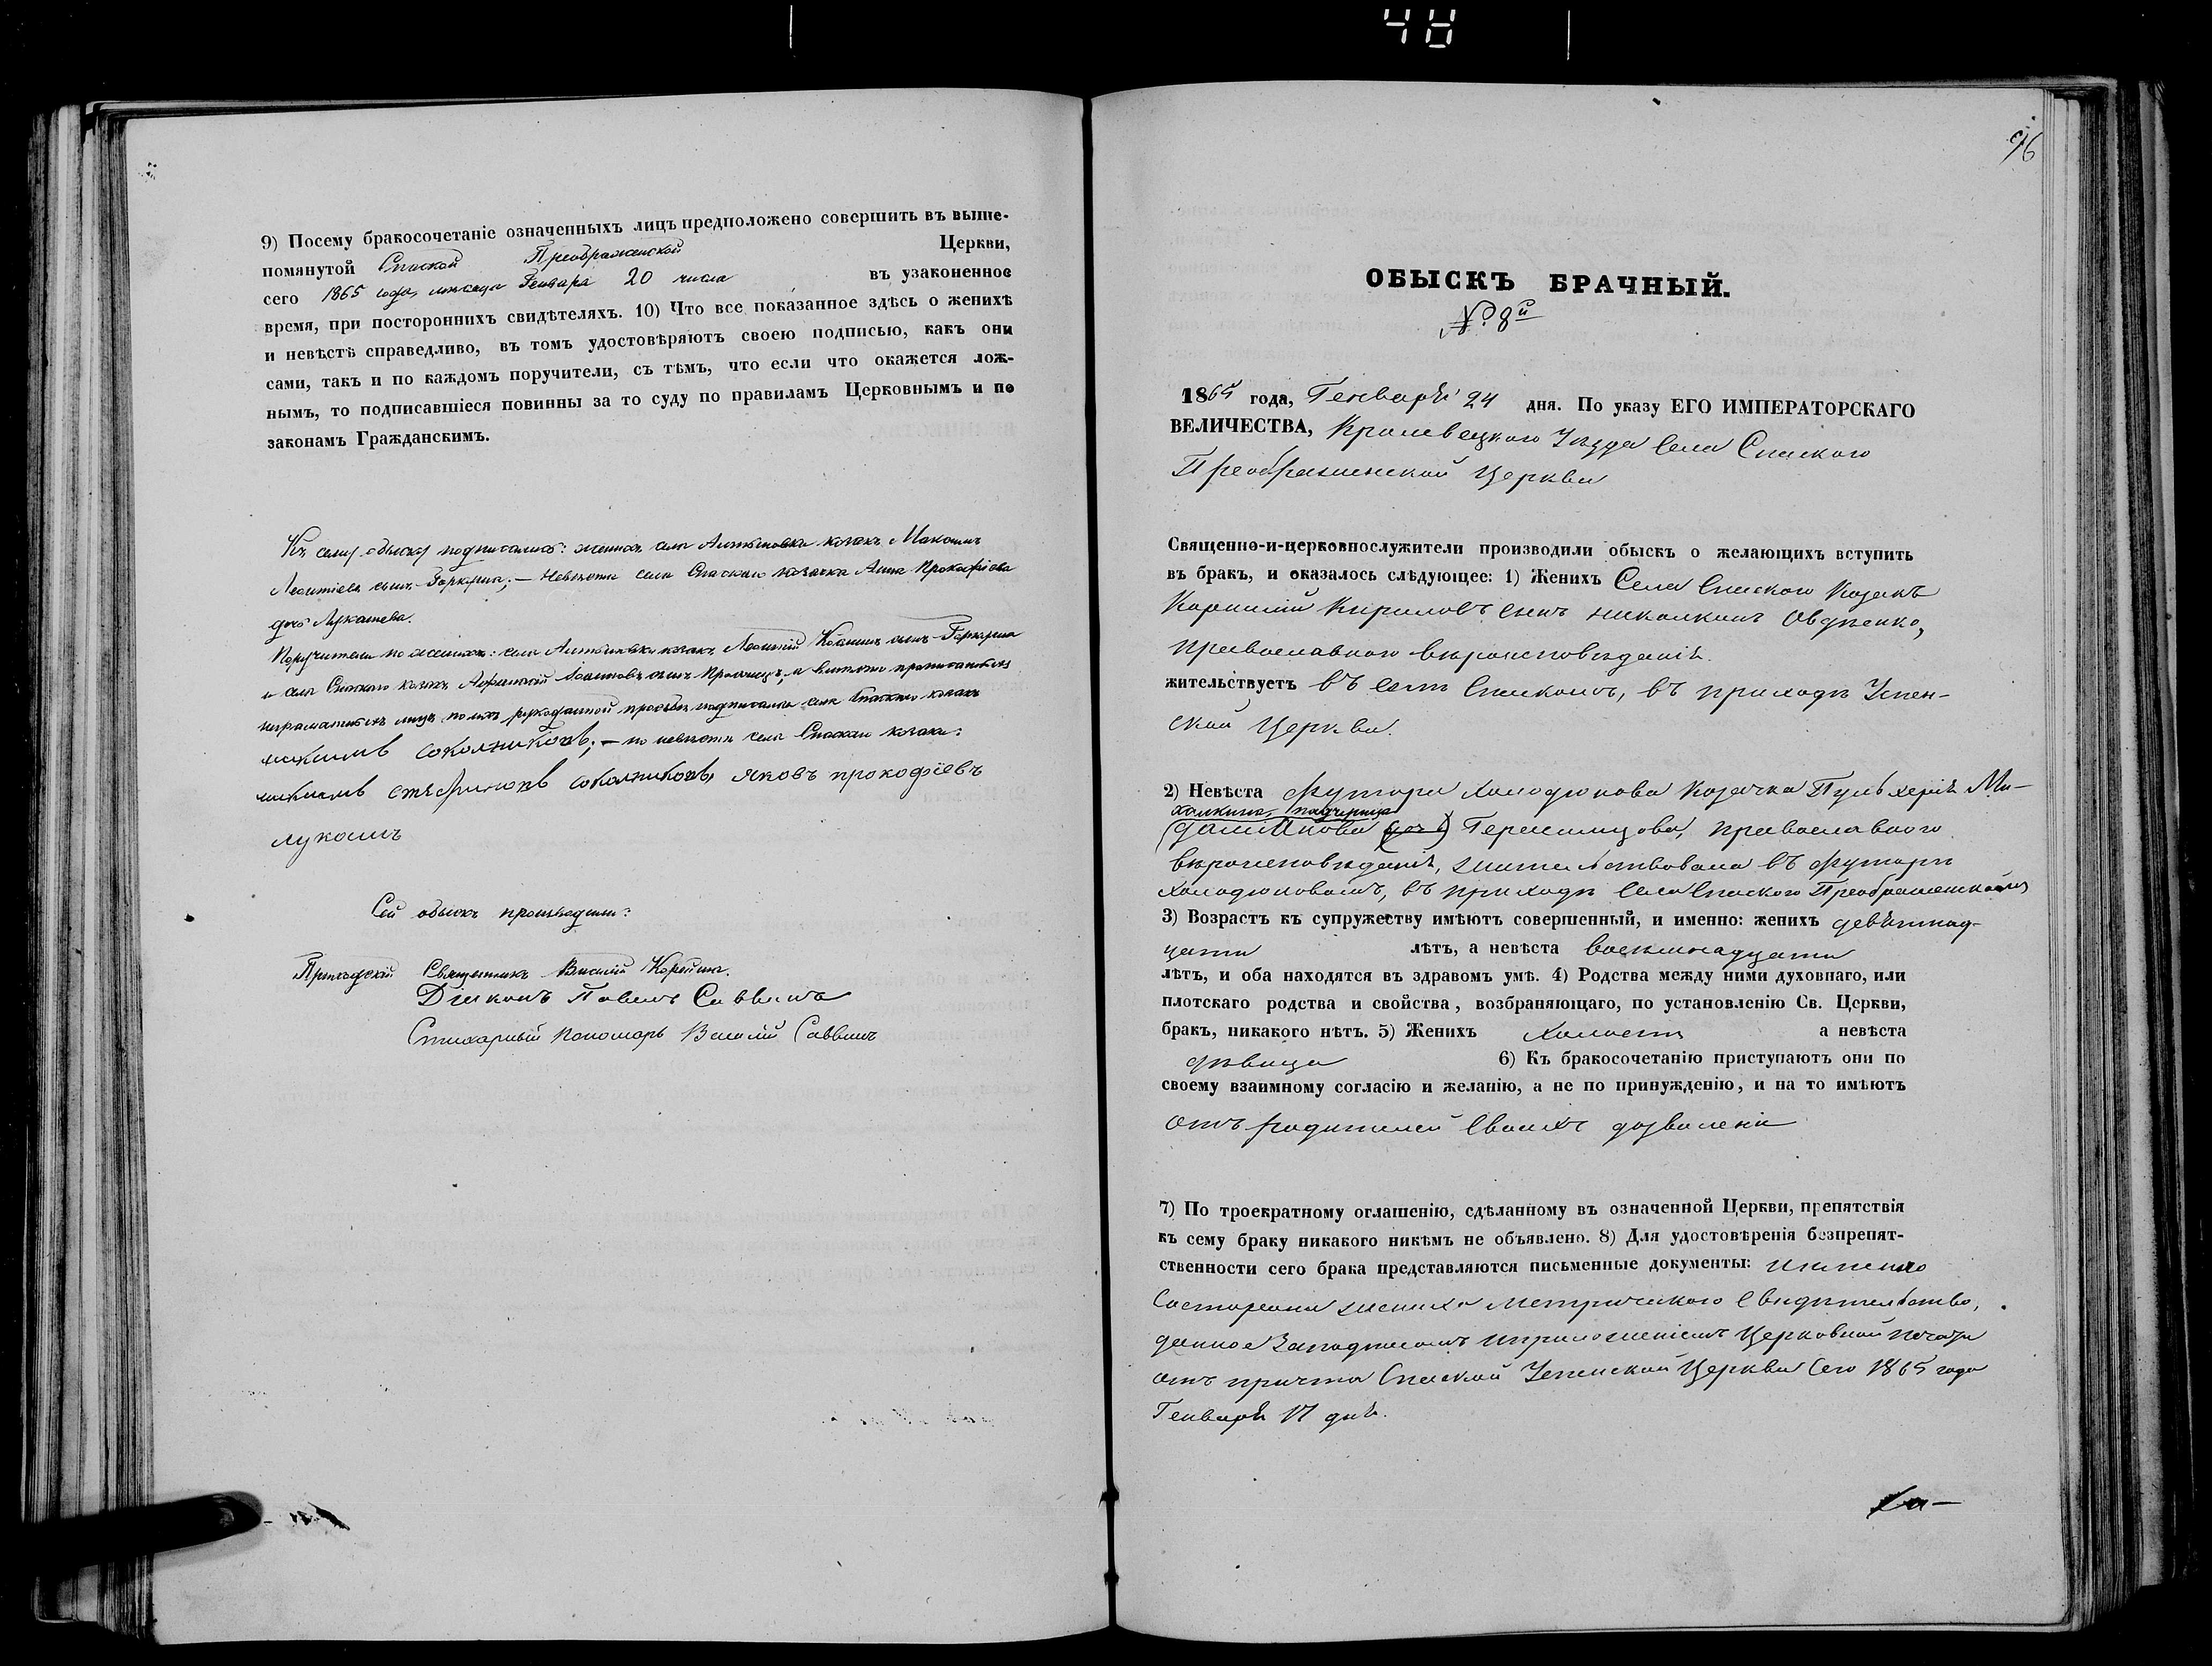 48
9) Посему бракосочетаніе означенныхъ лицъ предположено совершить въ выше-
помянутой Спаской Преображенской Церкви,
сего 1865 года, месяца Генваря 20 числа въ узаконенное
время, при постороннихъ свидѣтеляхъ. 10) Что все показанное здѣсь о женихѣ
и невѣстѣ справедливо, въ томъ удостовѣряютъ своею подписью, какъ они
сами, такъ и по каждомъ поручители, съ тѣмъ, что если что окажется лож-
нымъ, то подписавшіеся повинны за то суду по правиламъ Церковнымъ и по
законамъ Гражданскимъ.
Къ сему обыску подписались: женихъ села Алтыновки козакъ Максимъ
Леонтіевъ сынъ; — Невѣста села Спаскаго козачка Анна Прокофіева
дочь Лукашева.
Поручители по женихѣ: села Алтыновки козакъ Леонтій сынъ
и села Спаскаго козакъ сынъ, а вмѣсто
неграматныхъ лицъ по ихъ рукоданной прозьбѣ подписался села Спаскаго козакъ
соколниковъ; — по невѣстѣ села Спаскаго козаки:
соколниковъ яковъ прокофіевъ
лукашъ
Сей обыскъ производили:
Приходскій Священникъ Василій Корейша.
Діяконъ Павелъ Саввинъ
Стихарный Пономарь Василій Саввичъ
96
ОБЫСКЪ БРАЧНЫЙ.
№ 8й
1865 года, Генваря 24 дня. По указу ЕГО ИМПЕРАТОРСКАГО
ВЕЛИЧЕСТВА, Кролевецкого Уѣзда Села Спаского
Преображенской Церкви
Священно-и-церковнослужители производили обыскъ о желающихъ вступить
въ бракъ, и оказалось слѣдующее: 1) Женихъ Села Спаского Козакъ
Корнилій Кириловъ сынъ Овдѣенко,
православного вѣроисповѣданія.
жительствуетъ въ селѣ Спаскомъ, въ приходѣ Успен-
ской Церкви.
2) Невѣста хутора Холодюкова Козачка Пулхерія Ми-
падчерица
Герасимцова, православного
вѣроисповѣданія, жительствовала въ хуторѣ
Холодюковомъ, въ приходѣ Села Спаского Преображенскомъ
3) Возрастъ къ супружеству имѣютъ совершенный, и именно: женихъ девятнад-
цати лѣтъ, а невѣста восемнадцати
лѣтъ, и оба находятся въ здравомъ умѣ. 4) Родства между ними духовнаго, или
плотскаго родства и свойства, возбраняющаго, по установленію Св. Церкви,
бракъ, никакого нѣтъ. 5) Женихъ холостъ а невѣста
дѣвица 6) Къ бракосочетанію приступаютъ они по
своему взаимному согласію и желанію, а не по принужденію, и на то имѣютъ
отъ родителей своихъ дозволеніе
7) По троекратному оглашенію, сдѣланному въ означенной Церкви, препятствія
къ сему браку никакого никѣмъ не объявлено. 8) Для удостовѣренія безпрепят-
ственности сего брака представляются письменные документы: именно
Состороны жениха Метрическое Свидѣтельство,
данное Заподписомъ иприложеніемъ Церковной печати
отъ причта Спаской Успенской Церкви Сего 1865 года
Генваря 17 дня.